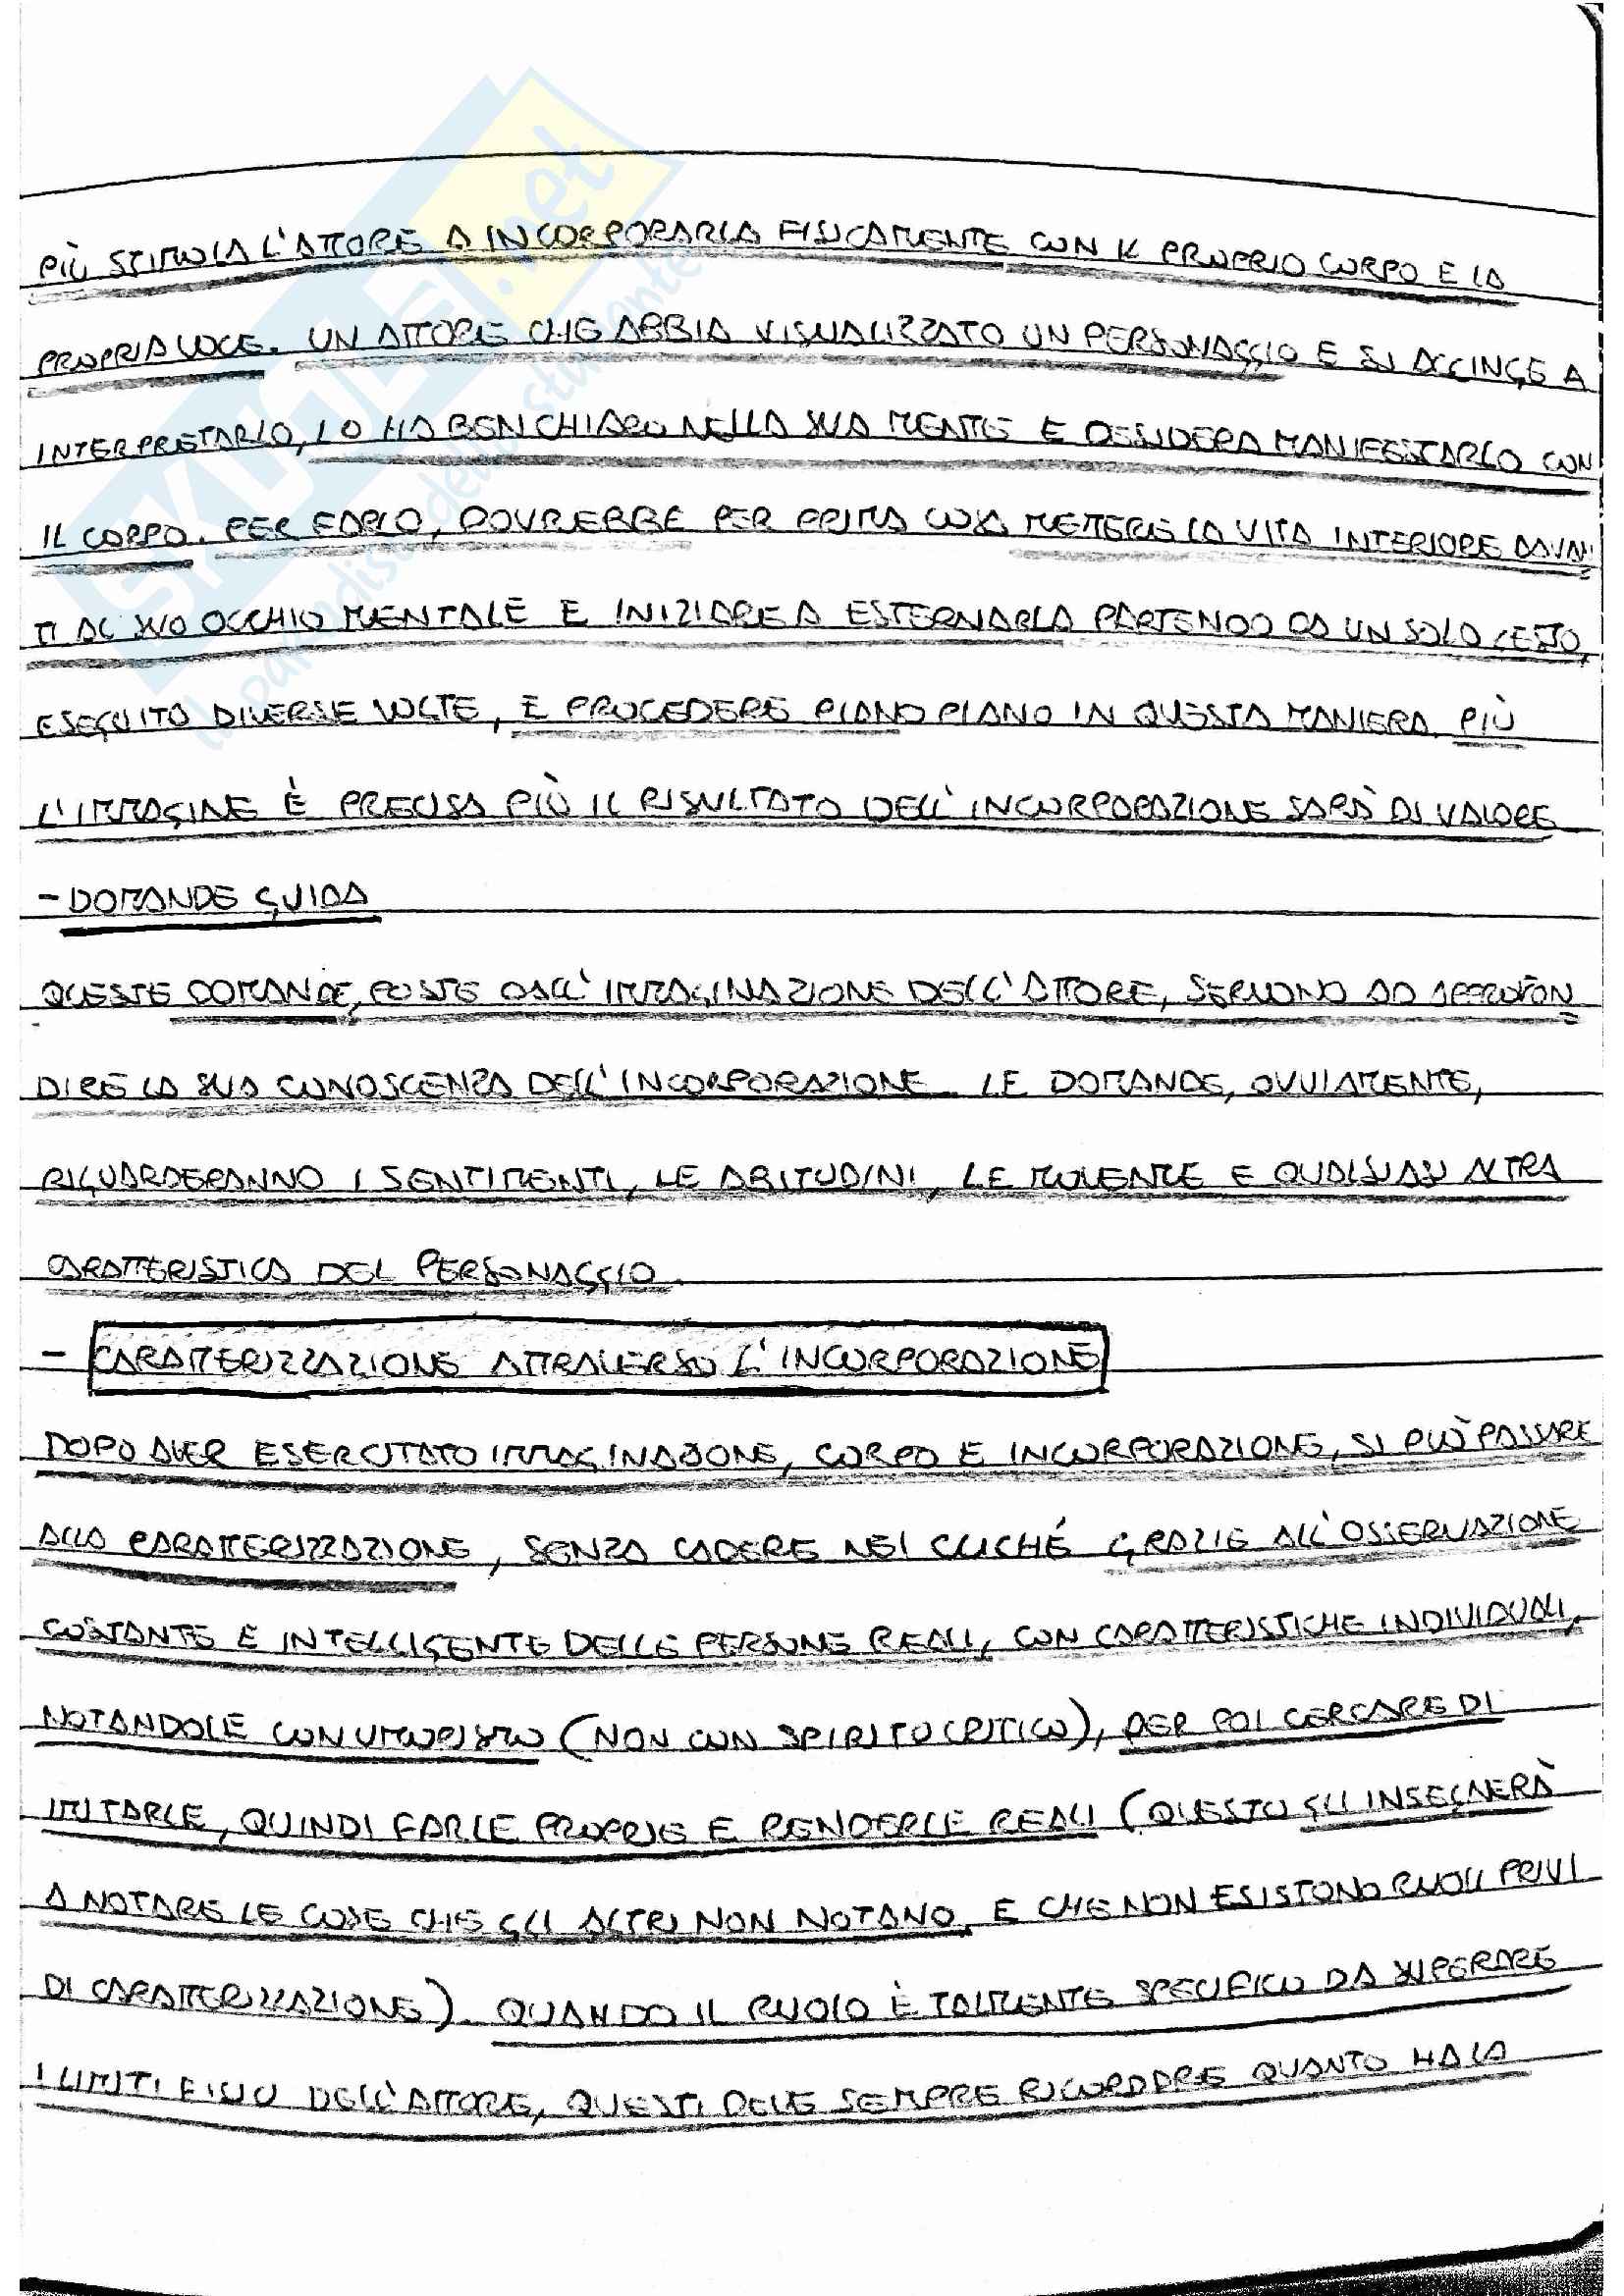 PIÙ STIMOLA L'ATTORE A INCORPORARLA FISICAMENTE CON IL PROPRIO CORPO E LA
PROPRIA VOCE. UN ATTORE CHE ABBIA VISUALIZZATO UN PERSONAGGIO E SI ACCINGE A
INTERPRETARLO, LO HA BEN CHIARO NELLA SUA MENTE E DESIDERA MANIFESTARLO CON
IL CORPO. PER FARLO, DOVREBBE PER PRIMA COSA METTERE LA VITA INTERIORE DAVAN
TI AL SUO OCCHIO MENTALE E INIZIARE A ESTERNARLA PARTENDO DA UN SOLO GESTO,
ESEGUITO DIVERSE VOLTE, E PROCEDERE PIANO PIANO IN QUESTA MANIERA. PIÙ
L'IMMAGINE È PRECISA PIÙ IL RISULTATO DELL'INCORPORAZIONE SARÀ DI VALORE
- DOMANDE GUIDA
QUESTE DOMANDE, POSTE DALL'IMMAGINAZIONE DELL'ATTORE, SERVONO AD APPROFON
DIRE LA SUA CONOSCENZA DELL'INCORPORAZIONE. LE DOMANDE, OVVIAMENTE,
RIGUARDERANNO I SENTIMENTI, LE ABITUDINI, LE MOVENZE E QUALSIASI ALTRA
CARATTERISTICA DEL PERSONAGGIO.
- CARATTERIZZAZIONE ATTRAVERSO L'INCORPORAZIONE
DOPO AVER ESERCITATO IMMAGINAZIONE, CORPO E INCORPORAZIONE, SI PUÒ PASSARE
ALLA CARATTERIZZAZIONE, SENZA CADERE NEI CLICHÉ GRAZIE ALL'OSSERVAZIONE
COSTANTE E INTELLIGENTE DELLE PERSONE REALI, CON CARATTERISTICHE INDIVIDUALI,
NOTANDOLE CON UMORISMO (NON CON SPIRITO CRITICO), PER POI CERCARE DI
IMITARLE, QUINDI FARLE PROPRIE E RENDERLE REALI (QUESTO GLI INSEGNERÀ
A NOTARE LE COSE CHE GLI ALTRI NON NOTANO, E CHE NON ESISTONO RUOLI PRIVI
DI CARATTERIZZAZIONE). QUANDO IL RUOLO È TALMENTE SPECIFICO DA SUPERARE
I LIMITI FISICI DELL'ATTORE, QUESTI DEVE SEMPRE RICORDARE QUANTO HA LA
SKUOLA.net
il paradiso dello studente